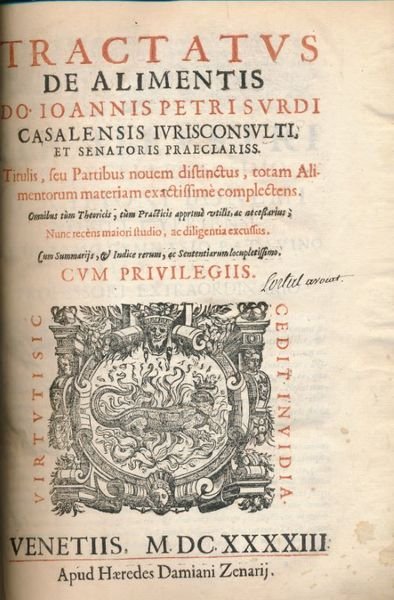 TRACTATVS
DE ALIMENTIS
DO. IOANNIS PETRI SVRDI
CASALENSIS IVRISCONSVLTI,
ET SENATORIS PRAECLARISS.
Titulis, seu Partibus nouem distinctus, totam Ali-
mentorum materiam exactissimè complectens.
Omnibus tùm Theoricis, tùm Practicis apprimè vtilis, ac necessarius;
Nunc recèns maiori studio, ac diligentia excussus.
Cum Summarijs, & Indice rerum, ac Sententiarum locupletissimo.
CVM PRIVILEGIIS.
avocat.
VIRTVTI SIC
CEDIT INVIDIA
VENETIIS, M.DC.XXXXIII
Apud Hæredes Damiani Zenarij.